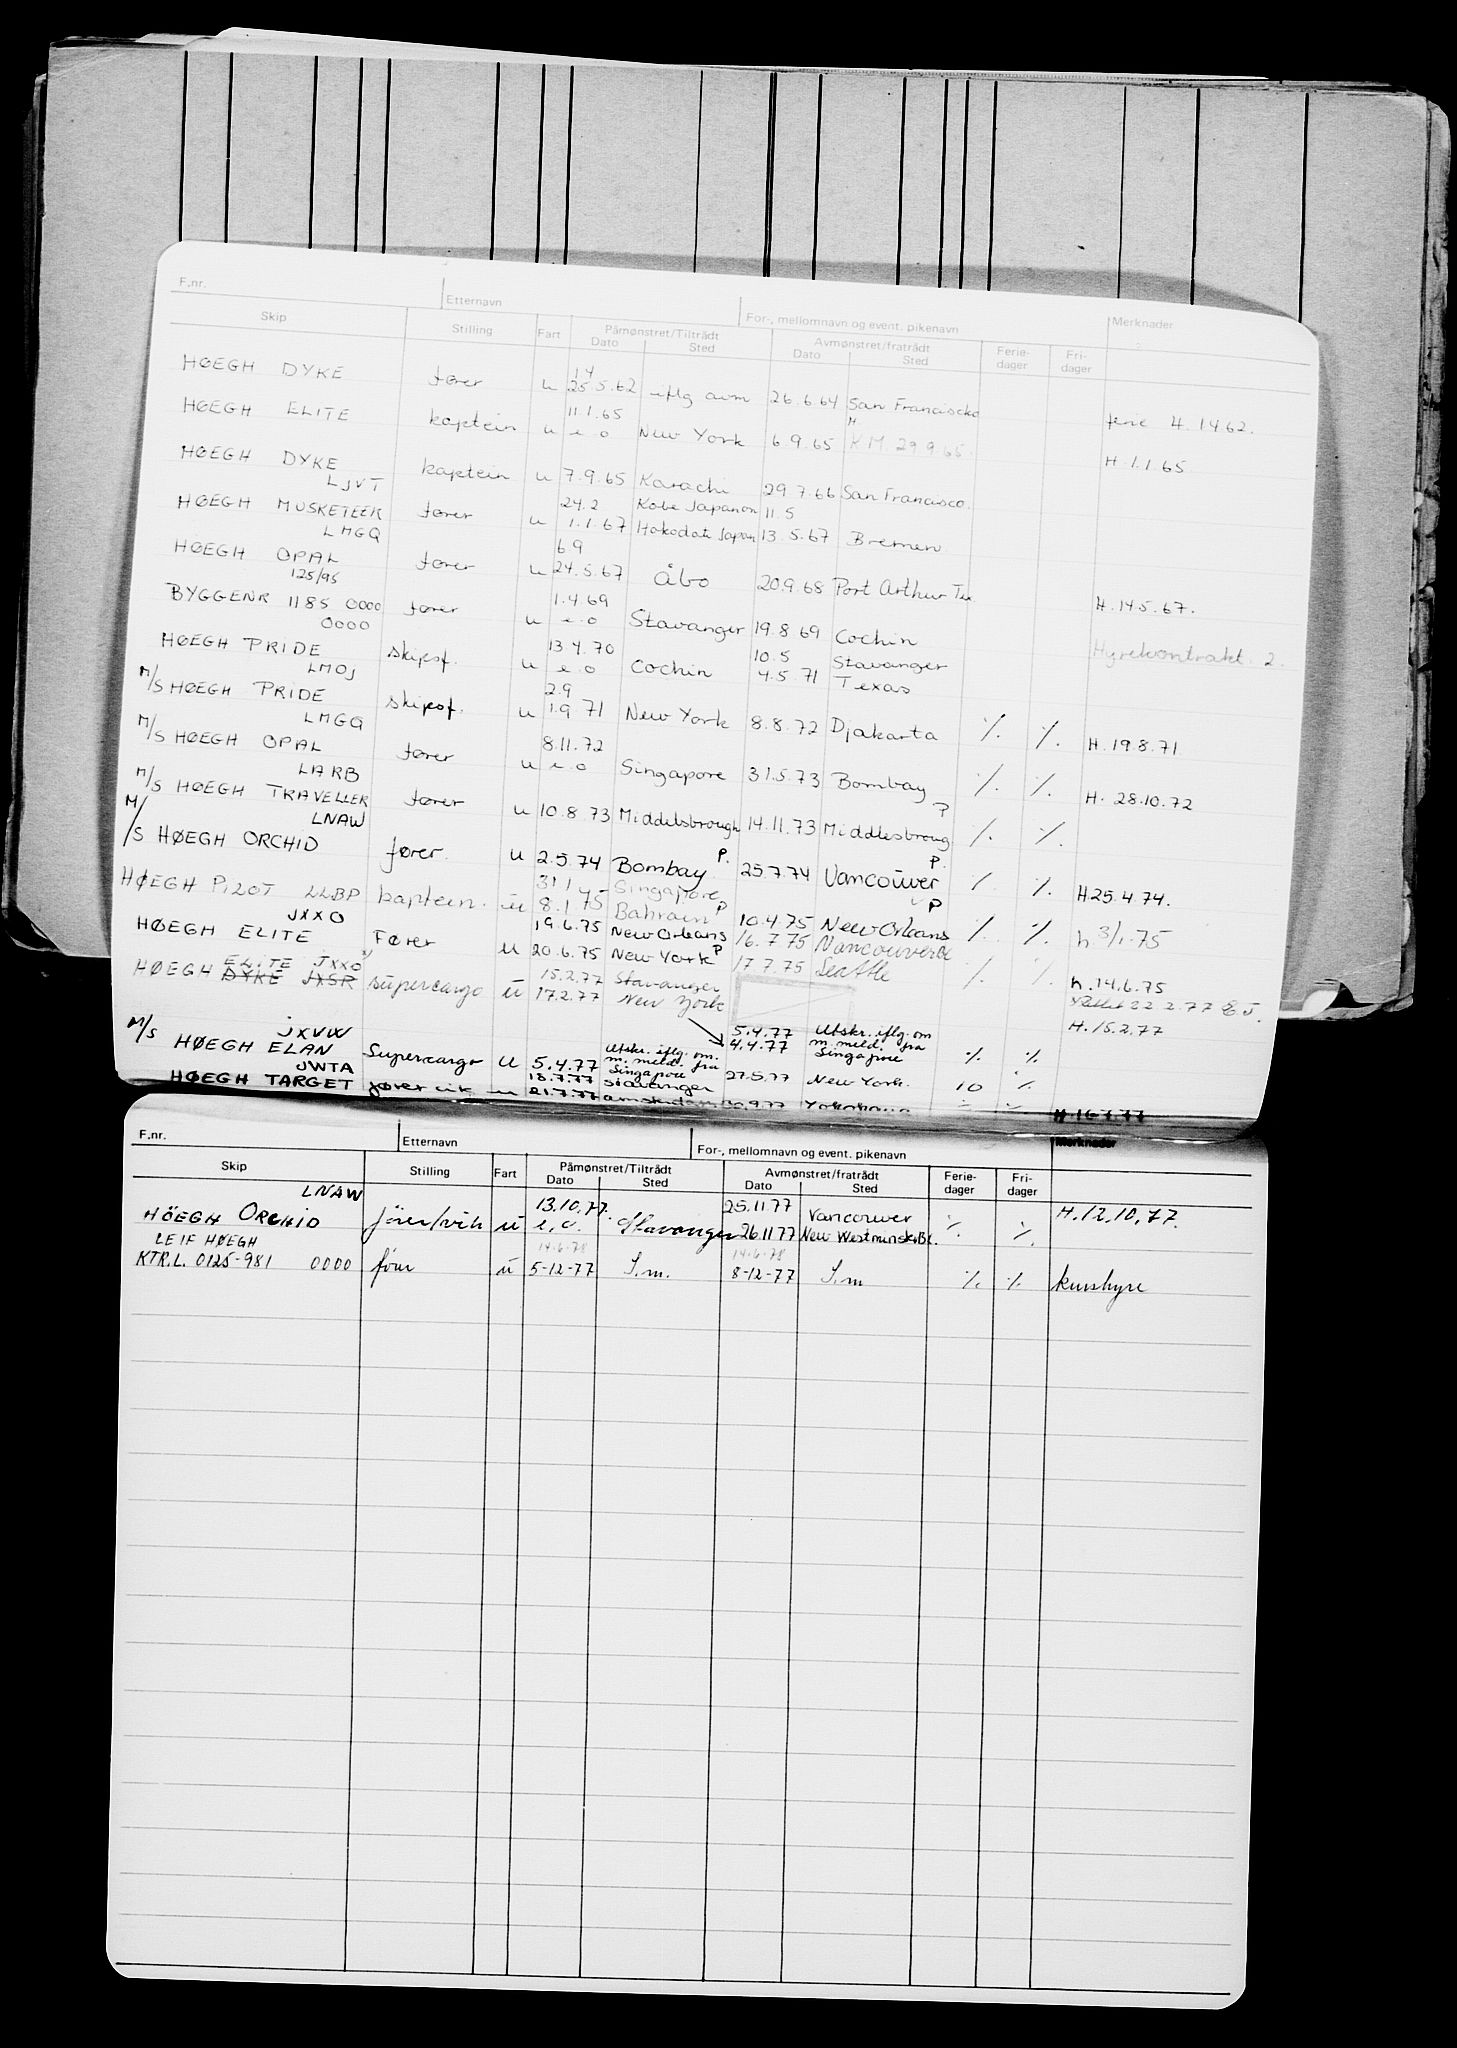 F.nr. Etternavn For-, mellomnavn og event. pikenavn Merknader
Skip Stilling Fart Påmønstret/Tiltrådt Avmønstret/fratrådt Ferie- Fri-
Dato Sted Dato Sted dager dager
1 4
HØEGH DYKE fører u 25.5.62 iflg avm 26.6.64 San Francisko ferie 4.1462.
11.1.65 H
HØEGH ELITE kaptein u e.o New York 6.9.65 K.M. 29.9.65. H.1.1.65
HØEGH DYKE kaptein u 7.9.65 Karachi 29.7.66 San Francisco.
LJVT 24.2 Kobe Japan on 11.5
HØEGH MUSKETEER fører u 1.1.67 Hakodate Japan 13.5.67 Bremen
LMGQ 69
HØEGH OPAL fører u 24.5.67 Åbo 20.9.68 Port Arthur Tex. H.14.5.67.
125/95 1.4.69
BYGGENR 1185 0000 fører u e.o Stavanger 19.8.69 Cochin Hyrekontrakt. 2.
0000 13 4.70 10.5 Stavanger
HØEGH PRIDE skipsf. u e.o Cochin 4.5.71 Texas
LMOJ 2.9
M/S HØEGH PRIDE skipsf. u 1.9.71 New York 8.8.72 Djakarta ·/. ·/. H.19.8.71
LMGQ 8.11.72
M/S HØEGH OPAL fører u e.o Singapore 31.5.73 Bombay ·/. ·/. H. 28.10.72
LARB P
M/S HØEGH TRAVELLER fører u 10.8.73 Middelsbrough 14.11.73 Middlesbroug ·/. ·/.
LNAW P. P.
M/S HØEGH ORCHID fører. u 2.5.74 Bombay 25.7.74 Vancouver ·/. ·/. H25.4.74.
31 1 Singapore P
HØEGH PILOT LLBP kaptein. u 8.1.75 Bahrain P 10.4.75 New Orleans ·/. ·/. h 3/1.75
JXXO 19.6.75 New Orleans 16.7.75 Vancouver Bc
HØEGH ELITE Fører u 20.6.75 New York P 17.7.75 Seattle ·/. ·/. h.14.6.75
ELITE JXXO 15.2.77 Stavanger 22.2.77
HØEGH DYKE JXSR supercargo u 17.2.77 New York H.15.2.77
JXVW 5.4.77 Utskr. iflg. om
Utskr. iflg. om. 4.4.77 m. meld. fra
M/S HØEGH ELAN Supercargo u 5.4.77 m. meld. fra Singapore ·/. ·/.
Singapore 27.5.77 New York. 10 ·/.
JWTA 18.7.77 Stavanger
HØEGH TARGET fører vik u 21.7.77 Amsterdam 30.9.77 Yokohama ·/. ·/. H.16.7.77
F.nr. Etternavn For-, mellomnavn og event. pikenavn Merknader
Skip Stilling Fart Påmønstret/Tiltrådt Avmønstret/fratrådt Ferie- Fri-
Dato Sted Dato Sted dager dager
LNAW 13.10.77. 25.11.77 Vancouver
HÖEGH ORCHID fører/vik u e.o. Stavanger 26.11.77 New Westminster B.C. ·/. ·/. H.12.10.77.
LEIF HØEGH 14-6-78 14-6-78
KTR.L. 0125-981 0000 fører u 5-12-77 S.m. 8-12-77 S.m ·/. ·/. kurshyre